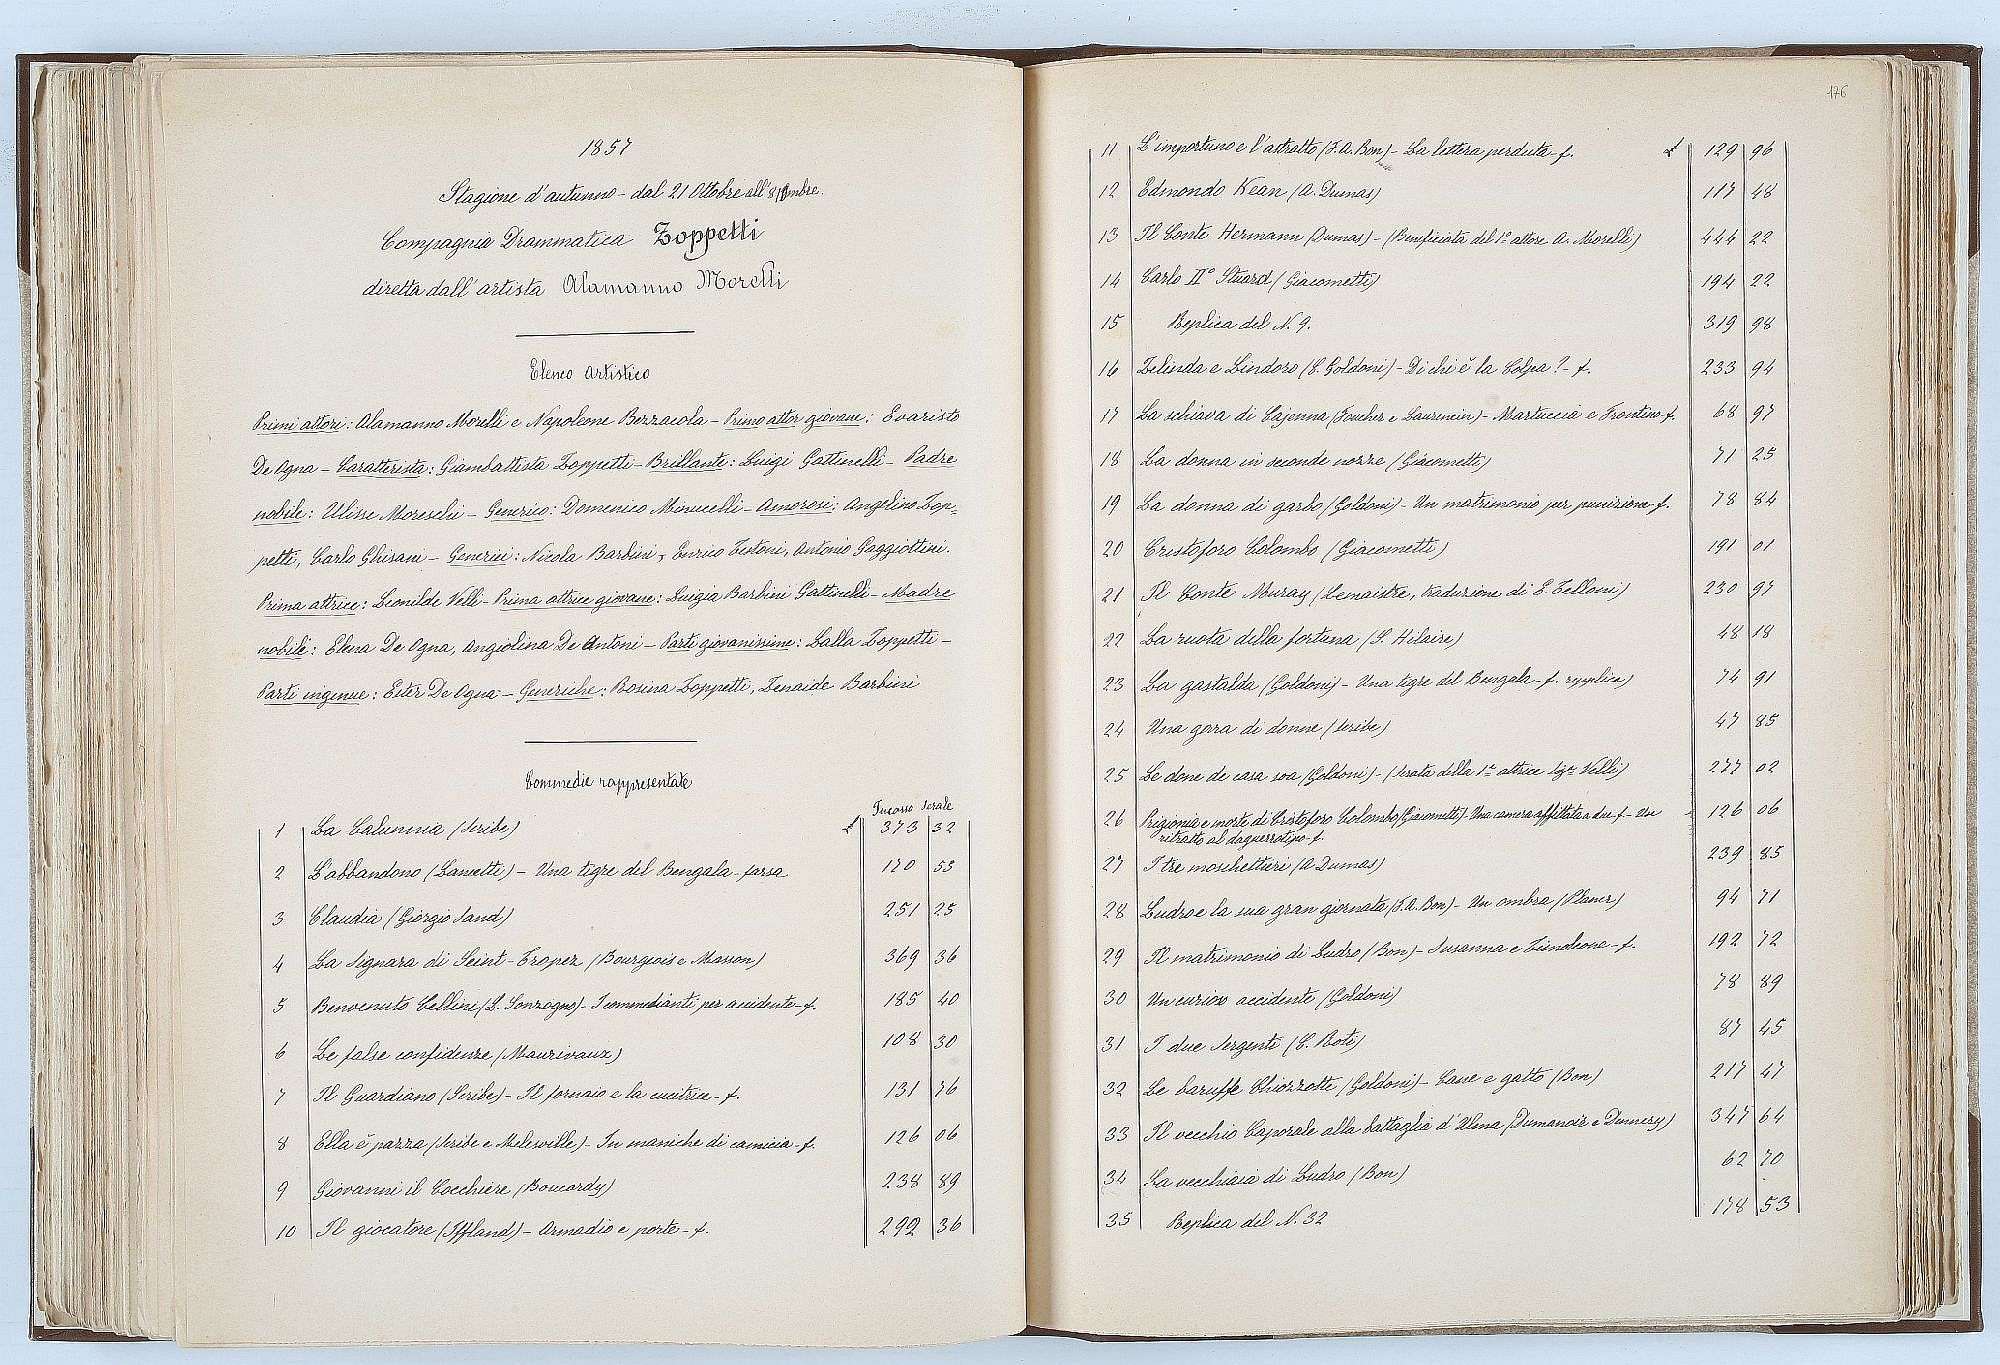 1857
Stagione d'autunno - dal 21 Ottobre all'8 Xmbre.
Compagnia Drammatica Zoppetti
diretta dall'artista Alamanno Morelli
Elenco artistico
Primi attori: Alamanno Morelli e Napoleone Bozzacola - Primo attor giovane: Evaristo
De Ogna - Caratterista: Giambattista Zoppetti - Brillante: Luigi Gattinelli - Padre
nobile: Ulisse Moreschi - Generico: Domenico Minucelli - Amorosi: Angelino Zop=
petti, Carlo Ghisani - Generici: Nicola Barbini, Enrico Testoni, Antonio Gaggiottini.
Prima attrice: Leonilde Velli - Prima attrice giovane: Luigia Barbini Gattinelli - Madre
nobile: Elena De Ogna, Angiolina De Antoni - Parti giovanissime: Lalla Zoppetti -
Parti ingenue: Ester De Ogna - Generiche: Rosina Zoppetti, Zenaide Barbini
Commedie rappresentate
Incasso serale
1 La Calunnia (Scribe) £ 373 32
2 L'abbandono (Lanetti) - Una tigre del Bengala - farsa 170 53
3 Claudia (Giorgio Sand) 251 25
4 La Signara di Seint-Tropez (Bourgeois e Masson) 369 36
5 Benvenuto Cellini (L. Sonzogno) - I commedianti per accidente - f. 185 40
6 Le false confidenze (Maurivaux) 108 30
7 Il Guardiano (Scribe) - Il fornaio e la cucitrice - f. 131 76
8 Ella è pazza (Scribe e Melesville) - In maniche di camicia - f. 126 06
9 Giovanni il Cocchiere (Boucardy) 238 89
10 Il giocatore (Iffland) - Armadio e porte - f. 292 36
176
11 L'importuno e l'astratto (F. A. Bon) - La lettera perduta - f. £ 129 96
12 Edmondo Kean (A. Dumas) 117 48
13 Il Conte Hermann (Dumas) - (Beneficiata del 1° attore A. Morelli) 444 22
14 Carlo II° Stuard (Giacometti) 194 22
15 Replica del N. 9. 319 98
16 Zelinda e Lindoro (C. Goldoni) - Di chi è la Colpa? - f. 233 94
17 La schiava di Cajenna (Foucher e Laurencin) - Martuccia e Frontino - f. 68 97
18 La donna in seconde nozze (Giacometti) 71 25
19 La donna di garbo (Goldoni) - Un matrimonio per punizione - f. 78 84
20 Cristoforo Colombo (Giacometti) 191 01
21 Il Conte Muray (Lemaistre, traduzione di E. Telloni) 230 97
22 La ruota della fortuna (S. Hilaire) 48 18
23 La gastalda (Goldoni) - Una tigre del Bengala - f. replica) 74 91
24 Una gara di donne (Scribe) 47 85
25 Le done de casa soa (Goldoni) - (Serata della 1ª attrice Sigra Velli) 277 02
26 Prigionia e morte di Cristoforo Colombo (Giacometti) - Una camera affittata a due - f. - Un
ritratto al daguerrotipo - f. 126 06
27 I tre moschettieri (A Dumas) 239 85
28 Ludro e la sua gran giornata (F. A. Bon) - Un ombra (Planer) 94 71
29 Il matrimonio di Ludro (Bon) - Susanna e Timoleone - f. 192 72
30 Un curioso accidente (Goldoni) 78 89
31 I due Sergenti (C. Roti) 87 45
32 Le baruffe Chiozzotte (Goldoni) - Cane e gatto (Bon) 217 47
33 Il vecchio Caporale alla battaglia d'Ulma (Dumanoir e Dennery) 347 64
34 La vecchiaia di Ludro (Bon) 62 70
35 Replica del N. 32 178 53